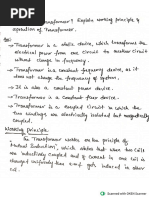 Transformer? Explain working principle &
operation of Transformer.
→ Transformer is a static device, which transforms the
electrical power from one circuit to another circuit
without change in frequency.
→ Transformer is a constant frequency device, as it
does not change the frequency of system.
→ It is also a constant power device.
→ Transformer is a constant power device.
→ Transformer is a coupled circuit in which the
two windings are electrically isolated but magnetically
coupled.
Working principle.
The Transformer works on the principle of
Mutual Induction, which states that when two coils
are inductively coupled and if current in one coil is
changed uniformly then emf gets induced in other
Scanned with OKEN Scanner